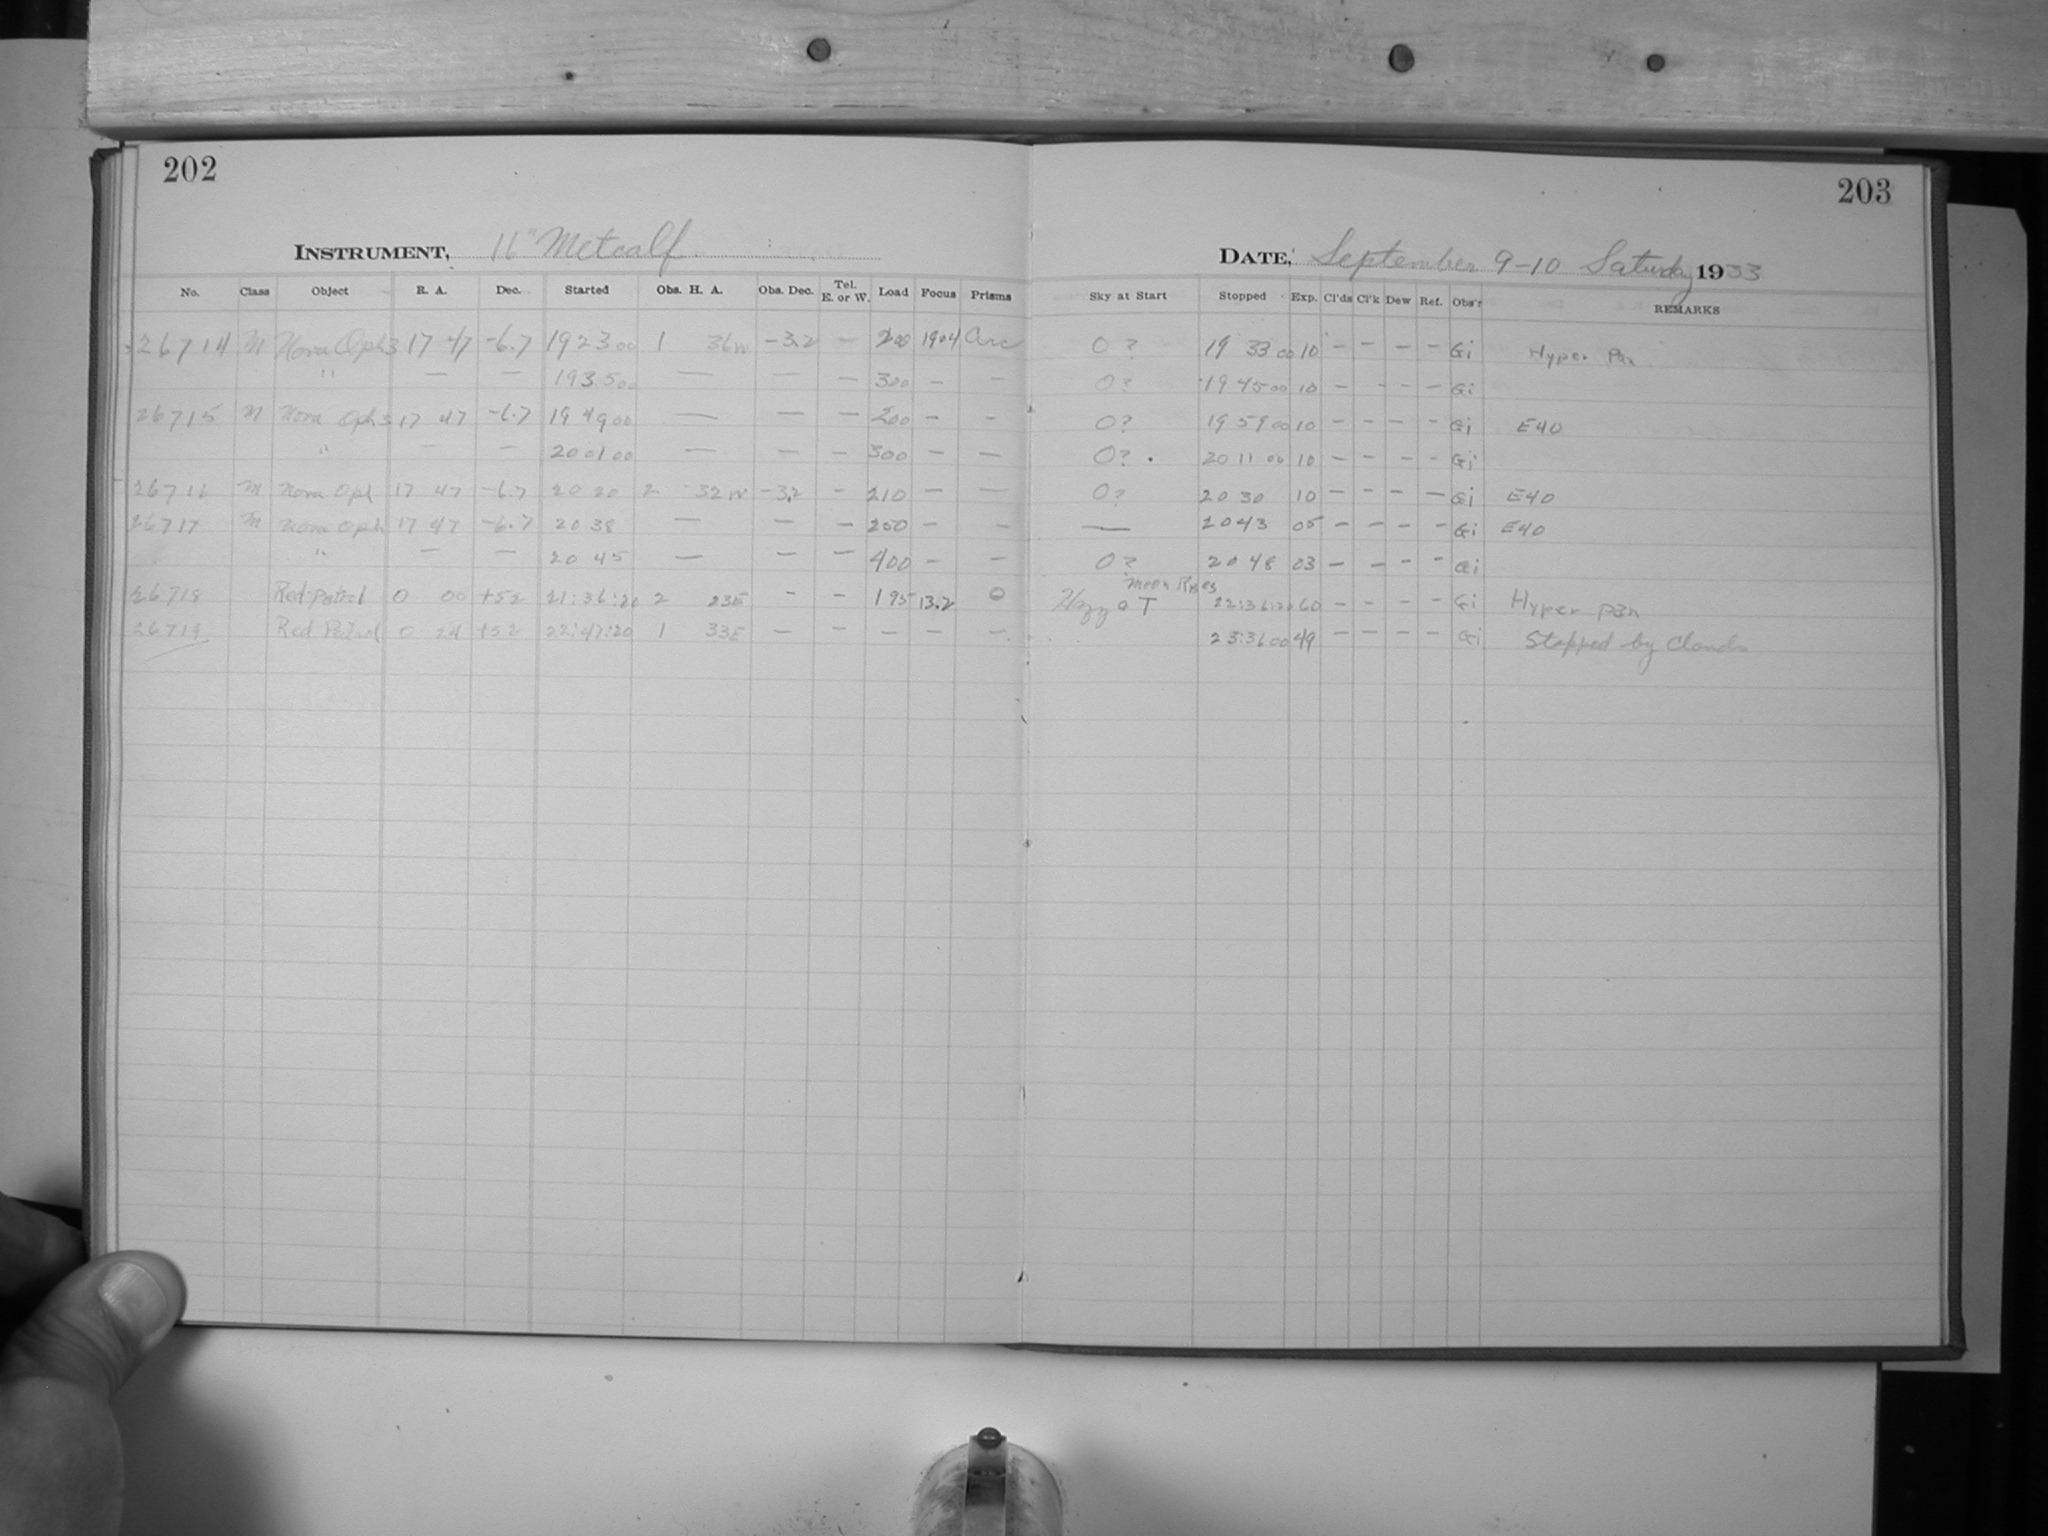 202
INSTRUMENT, 16" Metcalf.
No. Class Object R. A. Dec. Started Obs. H. A. Obs. Dec. Tel. E. or W. Load Focus Prisms
26714 M Nova Oph3 17 47 -6.7 19 23 00 1 36W -3.2 — 200 19.4
" — — 19 35 00 — — — 300 — —
26715 M Nova Oph3 17 47 -6.7 19 49 00 — — — 200 — —
" — — 20 01 00 — — — 300 — —
26716 M Nova Oph 17 47 -6.7 20 20 2 32W -3.2 - 210 — —
26717 M Nova Oph 17 47 -6.7 20 38 — — — 200 — —
" — — 20 45 — — — 400 — —
26718 Red patrol 0 00 +52 21:36:20 2 23E - - 195 13.2 0
26719 Red Patrol 0 24 +52 22:47:20 1 33E — — — — —
203
DATE, September 9-10 Saturday 1933
Sky at Start Stopped Exp. Cl'ds Cl'k Dew Ref. Obs'r REMARKS
0 ? 19 33 00 10 - - - - Gi Hyper Pan
0 ? 19 45 00 10 - - - - Gi
0 ? 19 59 00 10 - - - - Gi E40
0 ? 20 11 00 10 - - - - Gi
0 ? 20 30 10 - - - - Gi E40
— 20 43 05 - - - - Gi E40
0 ? 20 48 03 - - - - Gi
Moon Rises
Hazy 0 T 22:36:20 60 - - - - Gi Hyper pan
23:36 00 49 - - - - Gi Stopped by Clouds